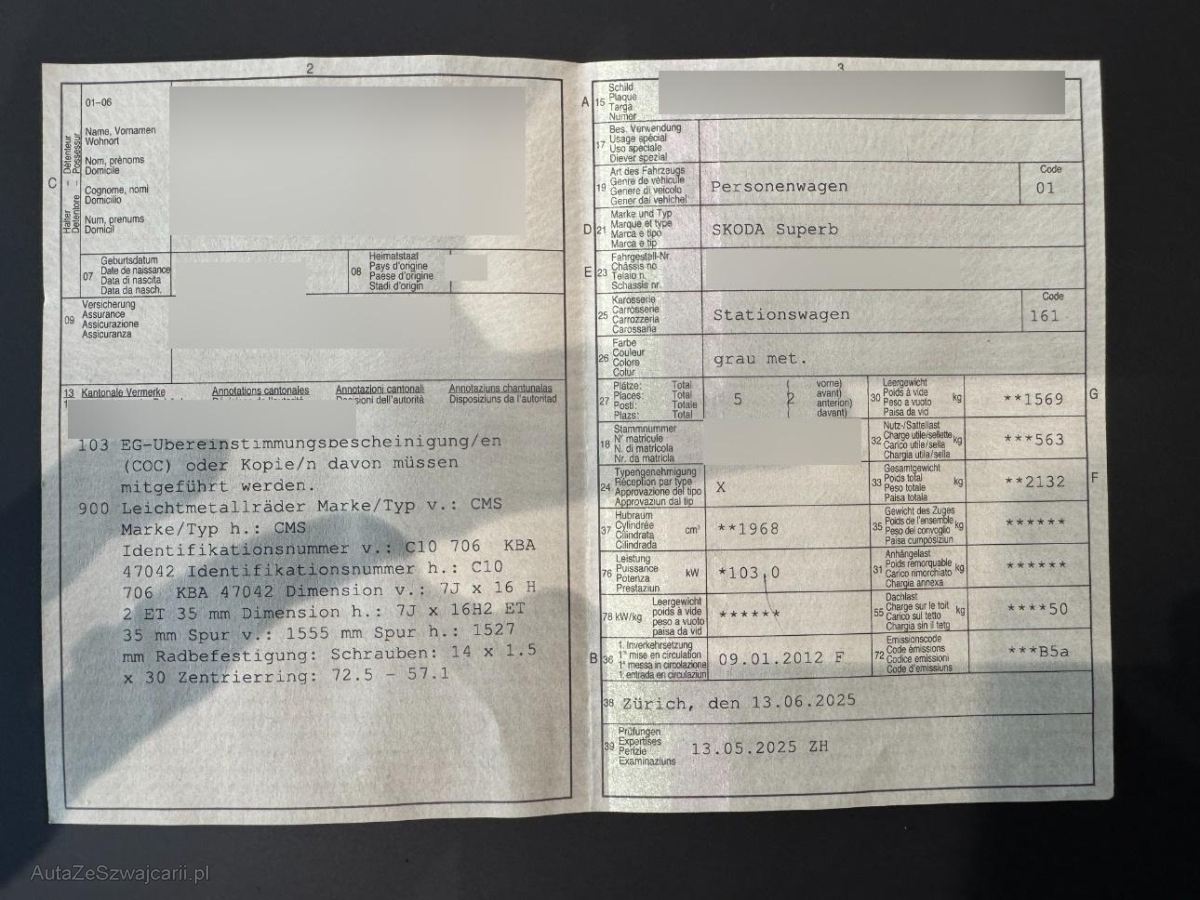 2
01-06
Halter - Détenteur
Detentore - Possessur
C
Name, Vornamen
Wohnort
Nom, prénoms
Domicile
Cognome, nomi
Domicilio
Num, prenums
Domicil
07
Geburtsdatum
Date de naissance
Data di nascita
Data da nasch.
08
Heimatstaat
Pays d'origine
Paese d'origine
Stadi d'origin
09
Versicherung
Assurance
Assicurazione
Assicuranza
13 Kantonale Vermerke Annotations cantonales Annotazioni cantonali Annotaziuns chantunalas
Decisioni dell'autorità Disposiziuns da l'autoritad
103 EG-Übereinstimmungsbescheinigung/en
(COC) oder Kopie/n davon müssen
mitgeführt werden.
900 Leichtmetallräder Marke/Typ v.: CMS
Marke/Typ h.: CMS
Identifikationsnummer v.: C10 706 KBA
47042 Identifikationsnummer h.: C10
706 KBA 47042 Dimension v.: 7J x 16 H
2 ET 35 mm Dimension h.: 7J x 16H2 ET
35 mm Spur v.: 1555 mm Spur h.: 1527
mm Radbefestigung: Schrauben: 14 x 1.5
x 30 Zentrierring: 72.5 - 57.1
3
A 15
Schild
Plaque
Targa
Numer
17
Bes. Verwendung
Usage spécial
Uso speciale
Diever spezial
19
Art des Fahrzeugs
Genre de véhicule
Genere di veicolo
Gener dal vehichel
Personenwagen
Code
01
D 21
Marke und Typ
Marque et type
Marca e tipo
Marca e tip
SKODA Superb
E 23
Fahrgestell-Nr.
Châssis no
Telaio n.
Schassis nr.
25
Karosserie
Carrosserie
Carrozzeria
Carossaria
Stationswagen
Code
161
26
Farbe
Couleur
Colore
Colur
grau met.
27
Plätze: Total
Places: Total
Posti: Totale
Plazs: Total
5 ( 2 vorne)
avant)
anteriori)
davant)
30
Leergewicht
Poids à vide
Peso a vuoto
Paisa da vid
kg
**1569
G
18
Stammnummer
N° matricule
N. di matricola
Nr. da matricla
32
Nutz-/Sattellast
Charge utile/sellette
Carico utile/sella
Chargia utila/sella
kg
***563
24
Typengenehmigung
Réception par type
Approvazione del tipo
Approvaziun dal tip
X
33
Gesamtgewicht
Poids total
Peso totale
Paisa totala
kg
**2132
F
37
Hubraum
Cylindrée
Cilindrata
Cilindrada
cm³
**1968
35
Gewicht des Zuges
Poids de l'ensemble
Peso del convoglio
Paisa cumposiziun
kg
******
76
Leistung
Puissance
Potenza
Prestaziun
kW
*103,0
31
Anhängelast
Poids remorquable
Carico rimorchiato
Chargia annexa
kg
******
78 kW/kg
Leergewicht
poids à vide
peso a vuoto
paisa da vid
******
55
Dachlast
Charge sur le toit
Carico sul tetto
Chargia sin il tetg
kg
****50
B 36
1. Inverkehrsetzung
1re mise en circulation
1a messa in circolazione
1. entrada en circulaziun
09.01.2012 F
72
Emissionscode
Code émissions
Codice emissioni
Code d'emissiuns
***B5a
38 Zürich, den 13.06.2025
39
Prüfungen
Expertises
Perizie
Examinaziuns
13.05.2025 ZH
AutaZeSzwajcarii.pl